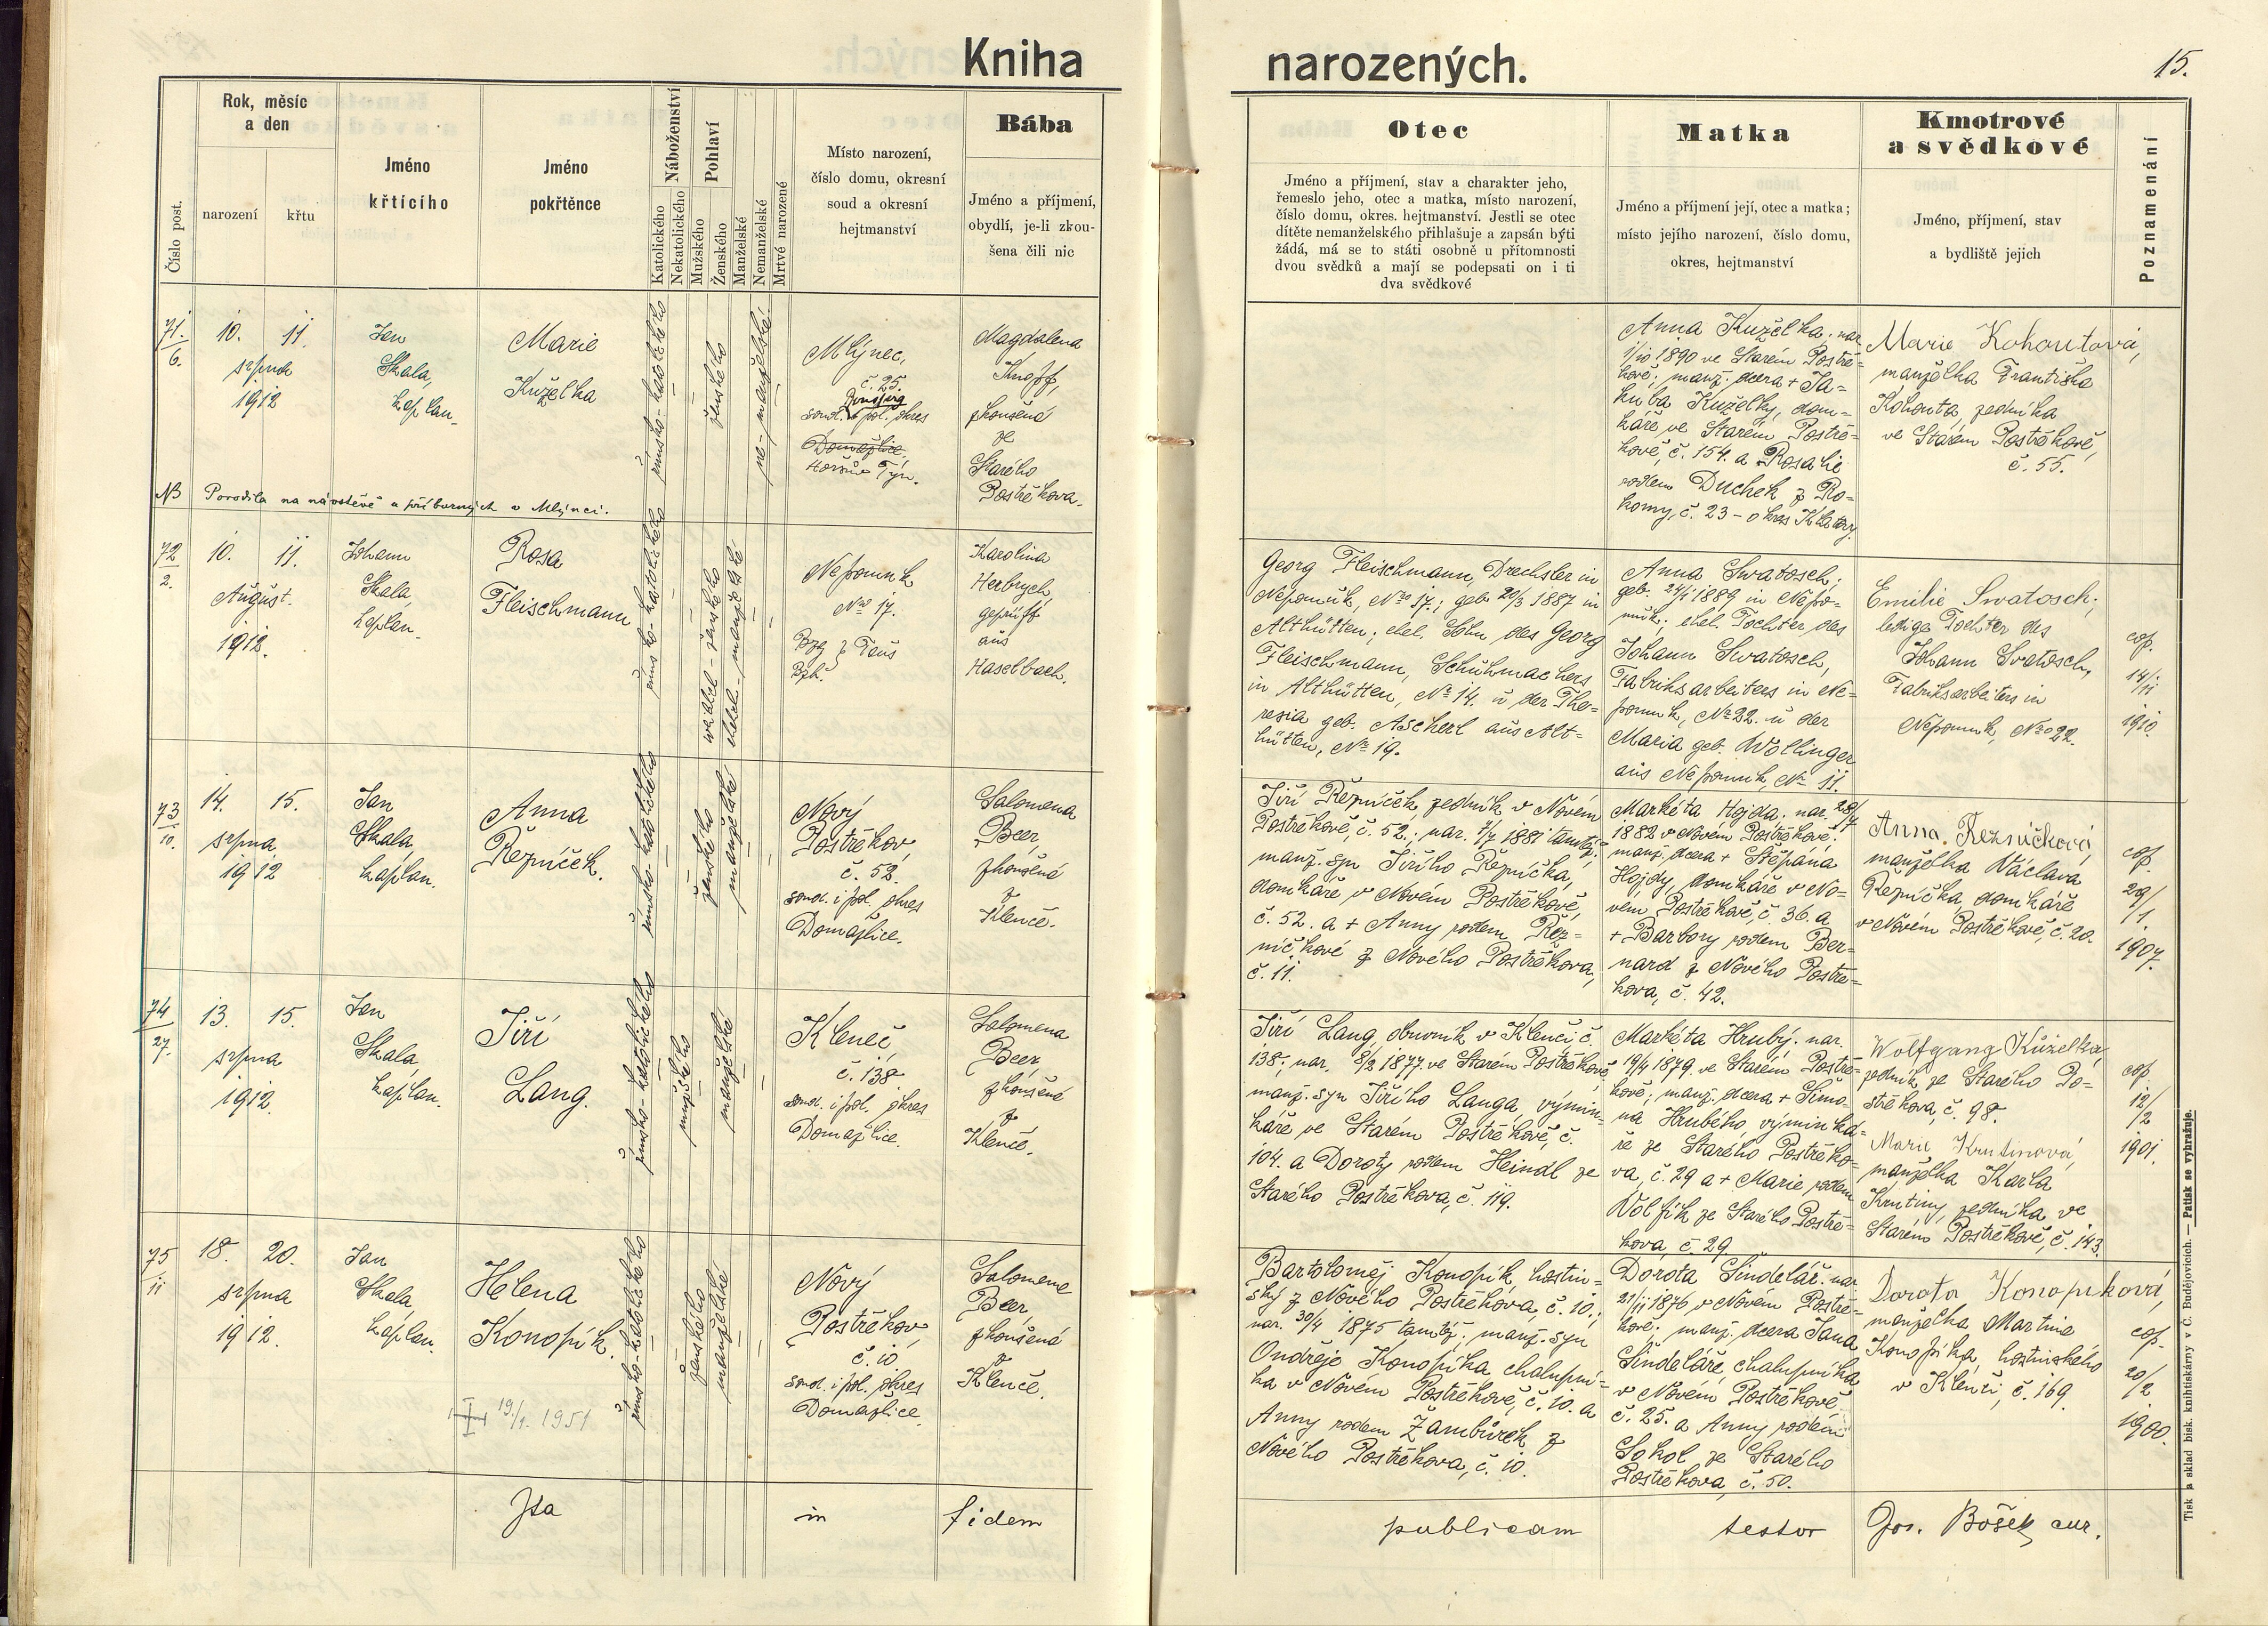 Kniha
narozených.
15.
Číslo post.
Rok, měsíc
a den
narození
křtu
Jméno
křtícího
Jméno
pokřtěnce
Náboženství
Katolického
Nekatolického
Pohlaví
Mužského
Ženského
Manželské
Nemanželské
Mrtvě narozené
Místo narození,
číslo domu, okresní
soud a okresní
hejtmanství
Bába
Jméno a příjmení,
obydlí, je-li zkou-
šena čili nic
Otec
Jméno a příjmení, stav a charakter jeho,
řemeslo jeho, otec a matka, místo narození,
číslo domu, okres. hejtmanství. Jestli se otec
dítěte nemanželského přihlašuje a zapsán býti
žádá, má se to státi osobně u přítomnosti
dvou svědků a mají se podepsati on i ti
dva svědkové
Matka
Jméno a příjmení její, otec a matka;
místo jejího narození, číslo domu,
okres, hejtmanství
Kmotrové
a svědkové
Jméno, příjmení, stav
a bydliště jejich
Poznamenání
71.
6.
10. 11.
srpna
1912
Jan
Skala,
kaplan.
Marie
Kuželka
římsko-katolického
ženského
ne-manželské
Mlýnec,
č. 25.
Ronsperg
soud. i pol. okres
Domažlice.
Horšův Týn.
Magdalena
Knopf,
zkoušená
ze
Starého
Postřekova.
NB Porodila na návštěvě u příbuzných v Mlýnci.
Anna Kuželka; nar.
1/10 1890 ve Starém Postře-
kově; manž. dcera + Ja-
kuba Kuželky, dom-
káře ve Starém Postře-
kově, č. 154. a Rosalie
rodem Duchek z Ro-
komy, č. 23 - okres Klatovy.
Marie Kohoutová,
manželka Františka
Kohouta, zedníka
ve Starém Postřekově,
č. 55.
72
2.
10. 11.
August.
1912.
Johann
Skala,
kaplan.
Rosa
Fleischmann
římsko-katolického
waibel-ženského
ehel.-manželské
Nepomuk
Nro 17.
Bzg z Taus
Bzh.
Karolina
Herbrych,
geprüft
aus
Haselbach.
Georg Fleischmann, Drechsler in
Nepomuk, Nro 17.; geb. 20/3 1887 in
Althütten; ehel. Sohn des Georg
Fleischmann, Schuhmachers
in Althütten, No 14. u der The-
resia geb. Ascherl aus Alt-
hütten, No 19.
Anna Swatosch;
geb. 24/1 1889 in Nepo-
muk; ehel. Tochter des
Johann Swatosch,
Fabriksarbeiters in Ne-
pomuk, No 22. u der
Maria geb. Wollinger
aus Nepomuk, No 11.
Emilie Swatosch;
ledige Tochter des
Johann Svatosch,
Fabriksarbeiters in
Nepomuk, Nro 22.
cop.
14/
11
1910.
73
10.
14. 15.
srpna
1912
Jan
Skala,
kaplan.
Anna
Řezníček.
římsko-katolického
ženského
manželské
Nový
Postřekov,
č. 52.
soud. i pol. okres
Domažlice.
Salomena
Beer,
zkoušená
z
Klenče.
Jiří Řezníček, zedník v Novém
Postřekově, č. 52.; nar. 1/7 1881 tamtéž;
manž. syn Jiřího Řezníčka,
domkáře v Novém Postřekově,
č. 52. a + Anny rodem Řez-
níčkové z Nového Postřekova,
č. 11.
Markéta Hojda; nar. 28/7
1882 v Novém Postřekově;
manž. dcera + Štěpána
Hojdy, domkáře v No-
vém Postřekově, č. 36. a
+ Barbory rodem Ber-
nard z Nového Postře-
kova, č. 42.
Anna Řezníčková,
manželka Václava
Řezníčka, domkáře
v Novém Postřekově, č. 20.
cop.
29/
1.
1907.
74
27.
13. 15.
srpna
1912.
Jan
Skala,
kaplan.
Jiří
Lang.
římsko-katolického
mužského
manželské
Kleneč,
č. 138.
soud. i pol. okres
Domažlice.
Salomena
Beer,
zkoušená
z
Klenče.
Jiří Lang, obuvník v Klenči č.
138; nar. 8/2 1877. ve Starém Postřekově;
manž. syn Jiřího Langa, výmin-
káře ve Starém Postřekově, č.
104. a Doroty rodem Heindl ze
Starého Postřekova, č. 119.
Markéta Hrubý; nar.
19/4 1879. ve Starém Postře-
kově; manž. dcera + Šimo-
na Hrubého, výminká-
ře ze Starého Postřeko-
va, č. 29 a + Marie rodem
Volfík ze Starého Postře-
kova, č. 29
Wolfgang Kůželka,
zedník ze Starého Po-
střekova, č. 98.
Marie Krutinová,
manželka Karla
Krutiny, zedníka ve
Starém Postřekově, č. 143.
cop.
12/
/2
1901.
75
11
18. 20.
srpna
1912.
Jan
Skala,
kaplan.
Helena
Konopík.
19/1. 1951
římsko-katolického
ženského
manželské
Nový
Postřekov,
č. 10.
soud. i pol. okres
Domažlice.
Salomena
Beer,
zkoušená
z
Klenče.
Bartoloměj Konopík, hostin-
ský z Nového Postřekova, č. 10.;
nar. 30/4 1875 tamtéž; manž. syn
Ondřeje Konopíka, chalupní-
ka v Novém Postřekově, č. 10. a
Anny rodem Žambůrek z
Nového Postřekova, č. 10.
Dorota Šindelář; nar.
21/11 1876, v Novém Postře-
kově; manž. dcera Jana
Šindeláře, chalupníka
v Novém Postřekově
č. 25. a Anny rodem
Sokol ze Starého
Postřekova, č. 50.
Dorota Konopíková,
manželka Martina
Konopíka, hostinského
v Klenči, č. 169.
cop.
20/
/2
1900.
Ita in fidem publicam testor Jos. Bošek, cur.
Tisk a sklad bisk. knihtiskárny v Č. Budějovicích. — Patisk se vyhražuje.